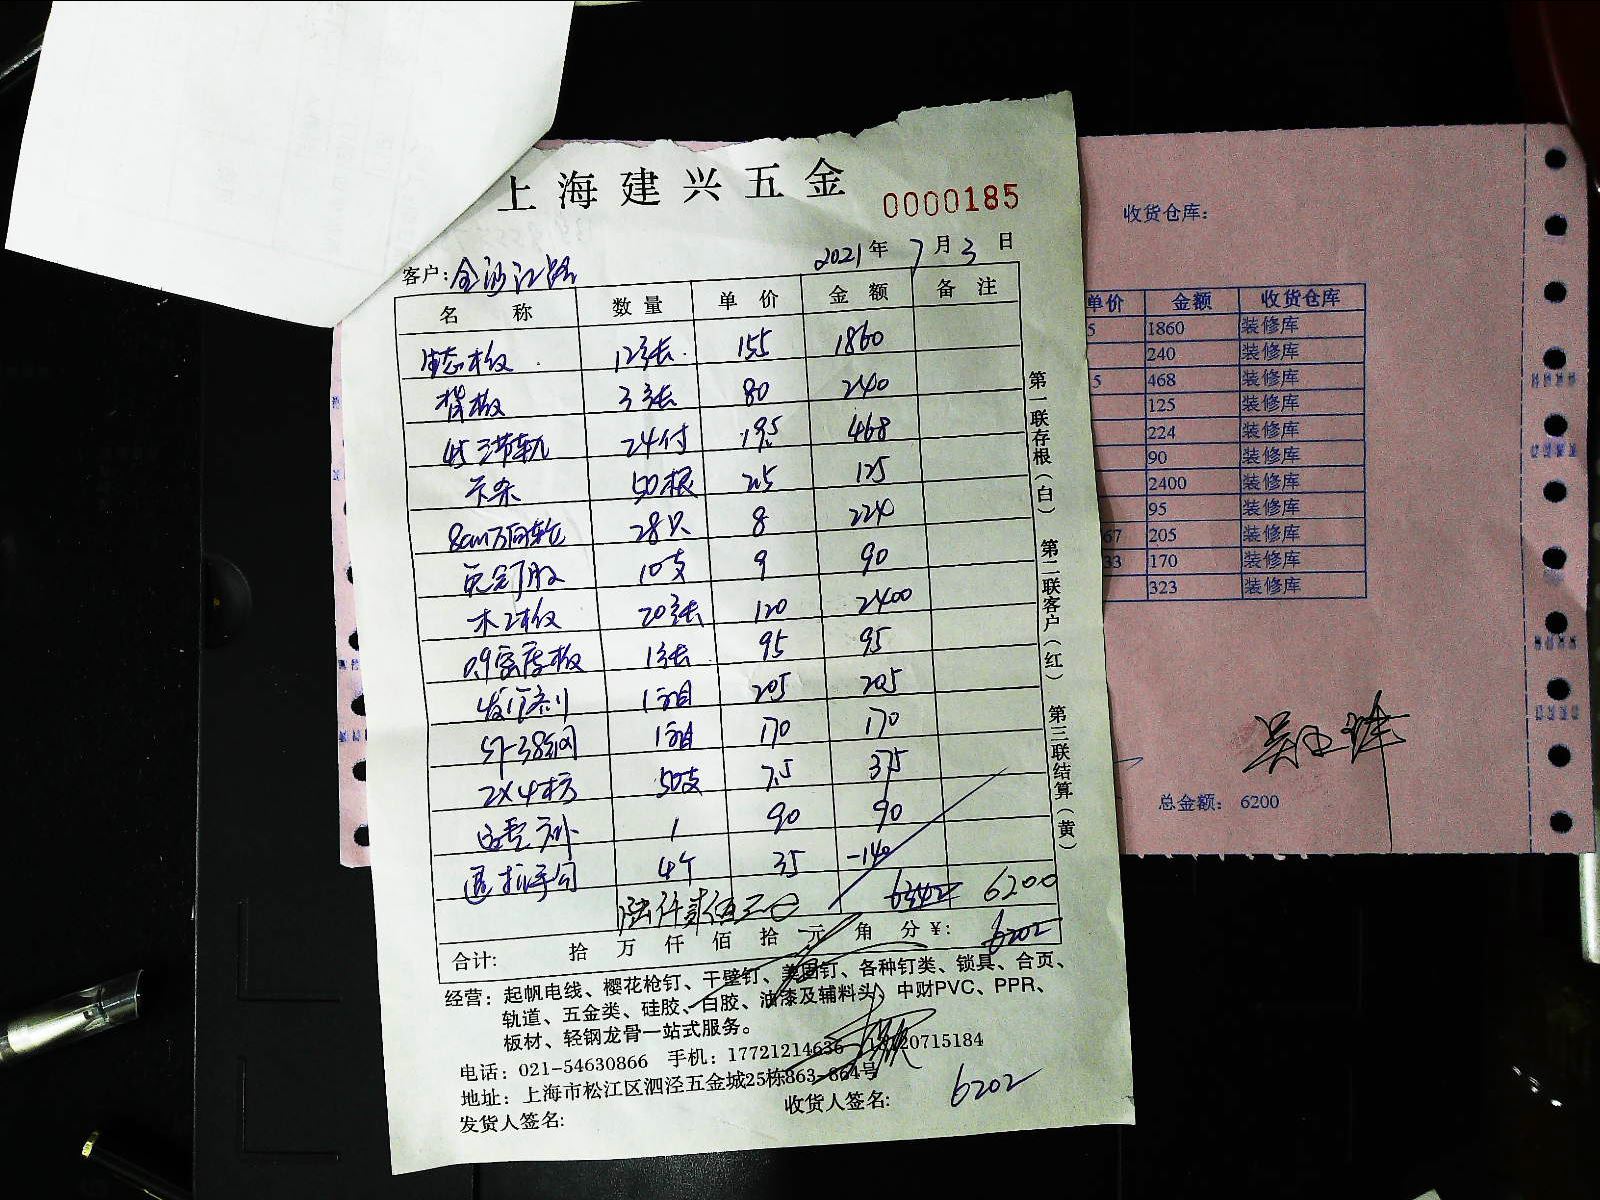 上海建兴五金
0000185
客户: 金沙江路
2021年7月3日
名称 数量 单价 金额 备注
生态板 12张 155 1860
背板 3张 80 240
45三节轨 24付 19.5 468
卡条 50根 2.5 125
8cm万向轮 28只 8 224
免钉胶 10支 9 90
木工板 20张 120 2400
0.9密度板 1张 95 95
1组 205 205
1组 170 170
2×4木方 50支 7.5 375
1 90 90
退拉手 4个 35 -140
6342 6200
合计: 拾万仟佰拾元角分¥: 6202
经营: 起帆电线、樱花枪钉、干壁钉、美固钉、各种钉类、锁具、合页、
轨道、五金类、硅胶、白胶、油漆及辅料头、中财PVC、PPR、
板材、轻钢龙骨一站式服务。
电话: 021-54630866 手机: 17721214636 20715184
地址: 上海市松江区泗泾五金城25栋863-864号
发货人签名: 收货人签名: 6202
第一联存根(白) 第二联客户(红) 第三联结算(黄)
收货仓库:
单价 金额 收货仓库
5 1860 装修库
240 装修库
5 468 装修库
125 装修库
224 装修库
90 装修库
2400 装修库
95 装修库
67 205 装修库
33 170 装修库
323 装修库
总金额: 6200